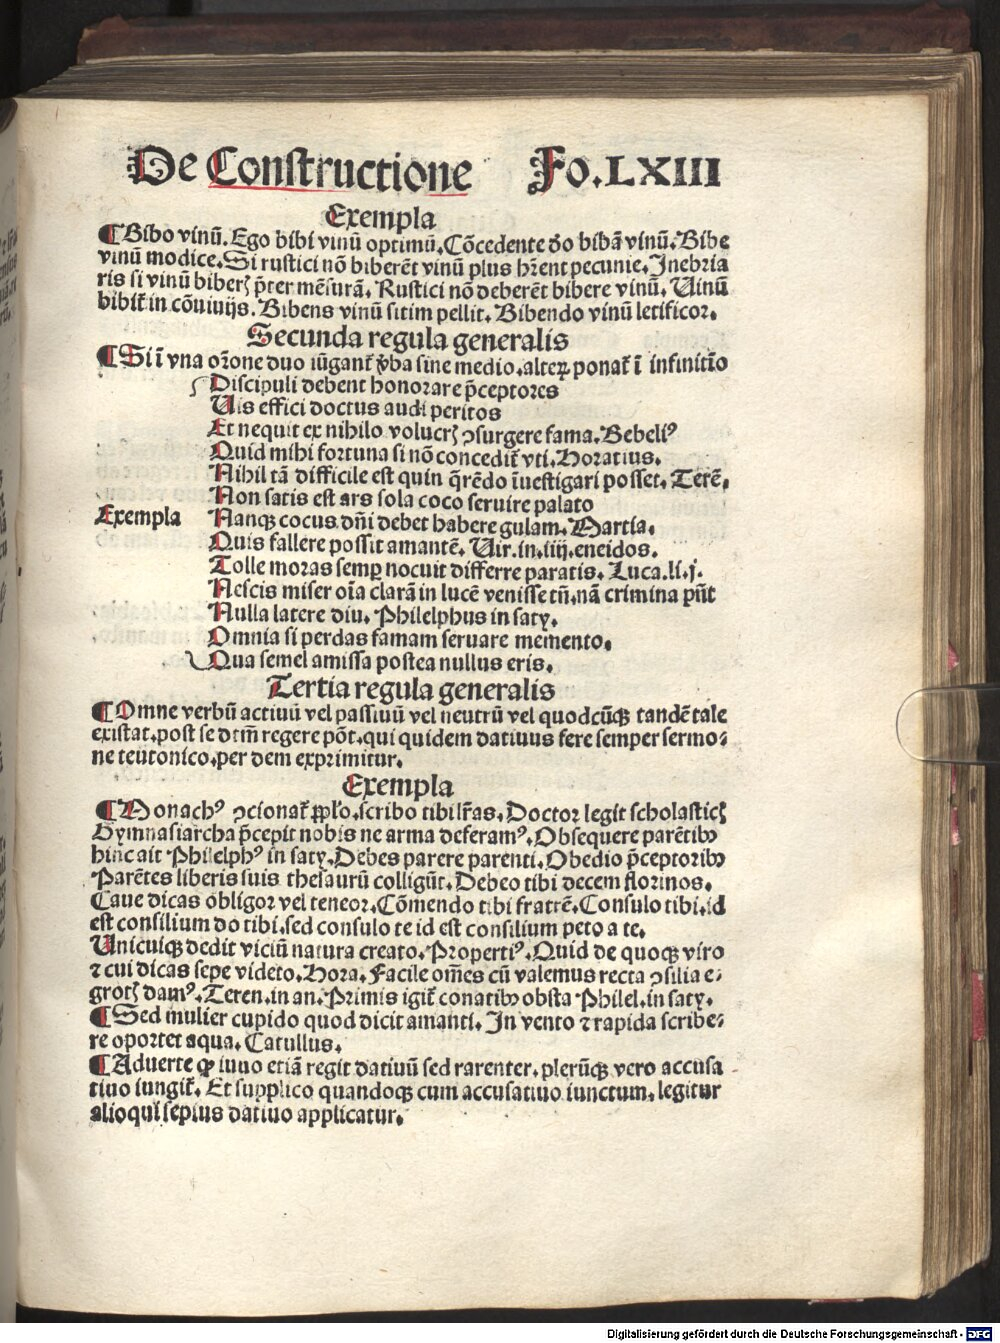 De Constructione Fo.LXIII
Exempla
¶Bibo vinū. Ego bibi vinū optimū. Cōcedente do bibā vinū. Bibe
vinū modice. Si rustici nō biberēt vinū plus hr̄ent pecunie. Inebria
ris si vinū biberꝭ p̄ter mēsurā. Rustici nō deberēt bibere vinū. Uinū
bibit᷑ in cōuiuijs. Bibens vinū sitim pellit. Bibendo vinū letificor.
Secunda regula generalis
¶Si ī vna or̄one duo iūgant᷑ v̄ba sine medio, alterꝝ ponat᷑ ī infinitīo
Discipuli debent honorare p̄ceptores
Uis effici doctus audi peritos
Et nequit ex nihilo volucrꝭ ꝯsurgere fama. Bebeliꝰ
Quid mihi fortuna si nō concedit᷑ vti. Horatius.
Nihil tā difficile est quin q̄rēdo īuestigari posset. Terē.
Non satis est ars sola coco seruire palato
Exempla Nanqꝫ cocus dn̄i debet habere gulam. Martia.
Quis fallere possit amantē. Uir.in.iiij.eneidos.
Tolle moras semꝑ nocuit differre paratis. Luca.li.j.
Nescis miser oīa clarā in lucē venisse tn̄, nā crimina pn̄t
Nulla latere diu. Philelphus in saty.
Omnia si perdas famam seruare memento.
Qua semel amissa postea nullus eris.
Tertia regula generalis
¶Omne verbū actiuū vel passiuū vel neutrū vel quodcūqꝫ tandē tale
existat, post se dtm̄ regere pōt, qui quidem datiuus fere semper sermo⸗
ne teutonico, per dem exprimitur.
Exempla
¶Monachꝰ ꝯcionat᷑ ꝓplo. scribo tibi lr̄as. Doctor legit scholasticꝭ
Gymnasiarcha p̄cepit nobis ne arma deferamꝰ. Obsequere parētibꝫ
hinc ait Philelphꝰ in saty. Debes parere parenti. Obedio p̄ceptoribꝫ
Parētes liberis suis thesaurū colligūt. Debeo tibi decem florinos.
Caue dicas obligor vel teneor. Cōmendo tibi fratrē. Consulo tibi, id
est consilium do tibi, sed consulo te id est consilium peto a te.
Unicuiqꝫ dedit viciū natura creato. Propertiꝰ. Quid de quoqꝫ viro
⁊ cui dicas sepe videto. Hora. Facile om̄es cū valemus recta ꝯsilia e⸗
grotꝭ damꝰ. Teren. in an. Primis igit᷑ conatibꝫ obsta Philel. in saty.
¶Sed mulier cupido quod dicit amanti. In vento ⁊ rapida scribe⸗
re oportet aqua. Catullus.
¶Aduerte ꝙ iuuo etiā regit datiuū sed rarenter, plerūqꝫ vero accusa
tiuo iungit᷑. Et supplico quandoqꝫ cum accusatiuo iunctum, legitur
alioqui sepius datiuo applicatur.
Digitalisierung gefördert durch die Deutsche Forschungsgemeinschaft - DFG